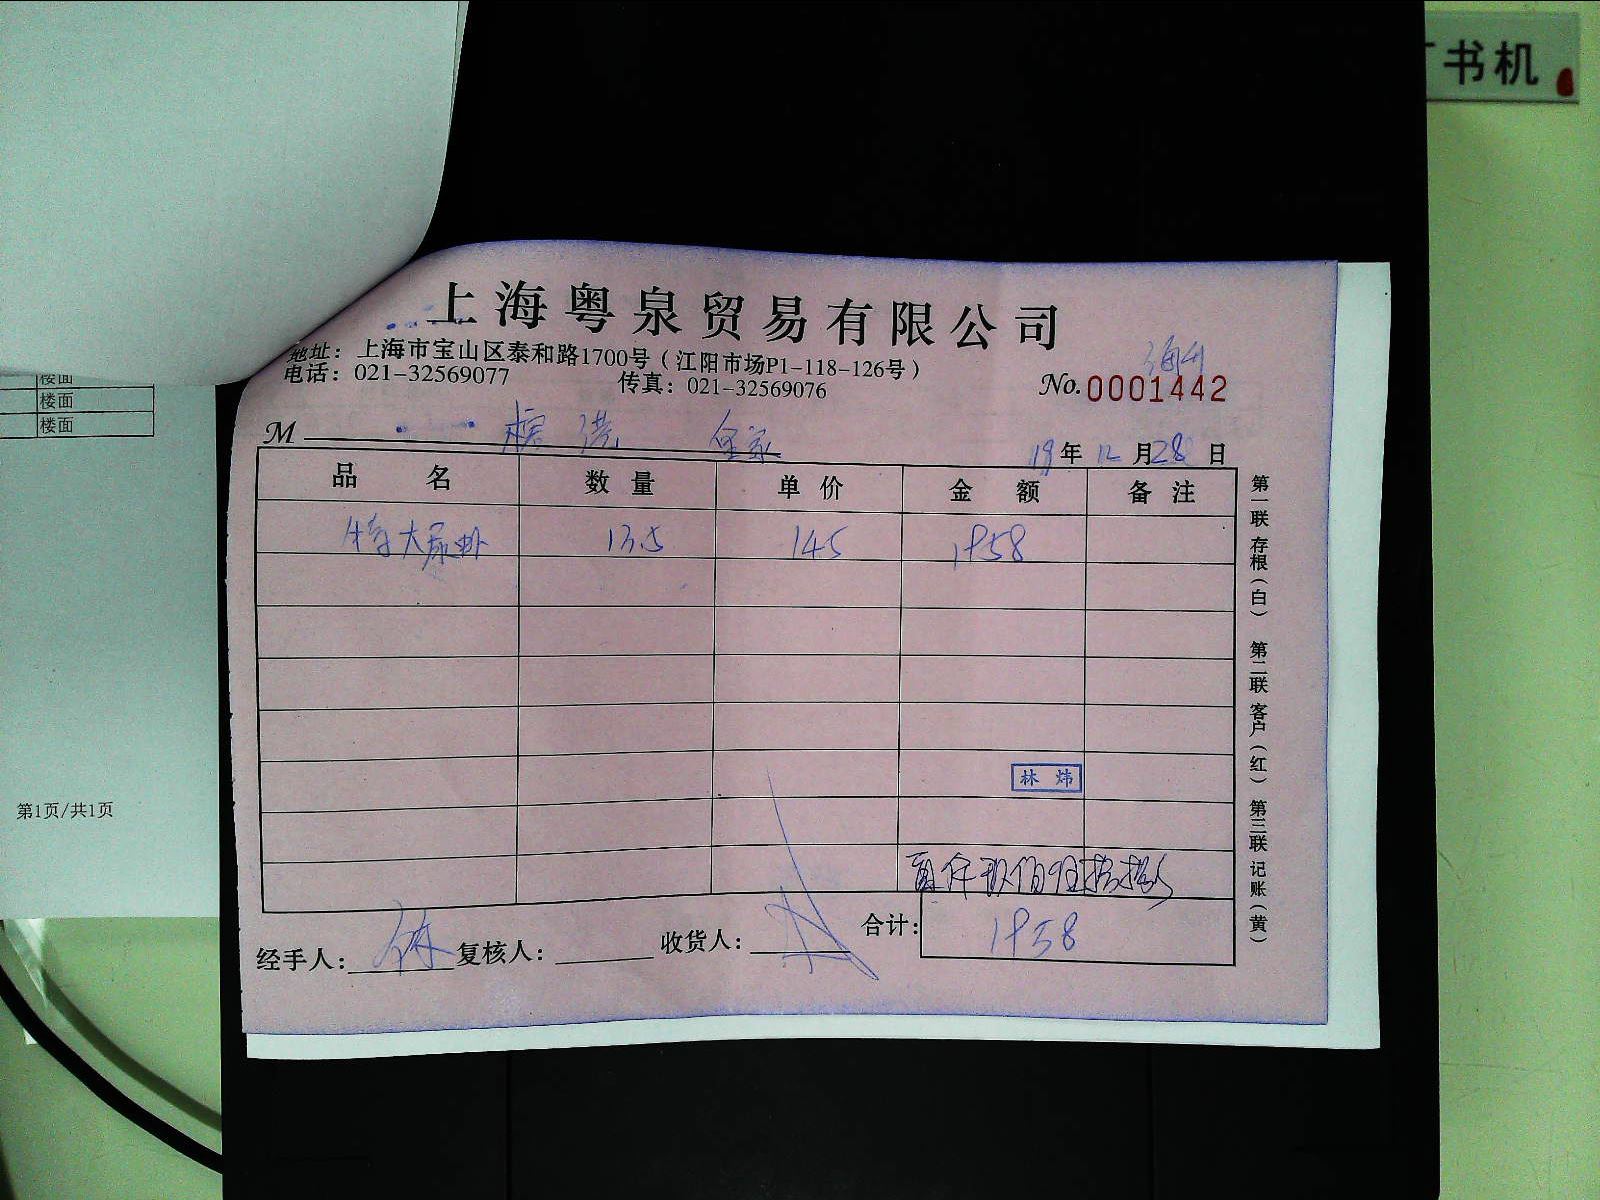 书机
上海粤泉贸易有限公司
地址：上海市宝山区泰和路1700号（江阳市场P1-118-126号）
电话：021-32569077 传真：021-32569076
No.0001442
M
19年12月28日
品名 数量 单价 金额 备注
特大尿虾 13.5 145 1958
林炜
合计：1958
经手人： 复核人： 收货人：
第一联存根（白） 第二联客户（红） 第三联记账（黄）
楼面
楼面
楼面
第1页/共1页